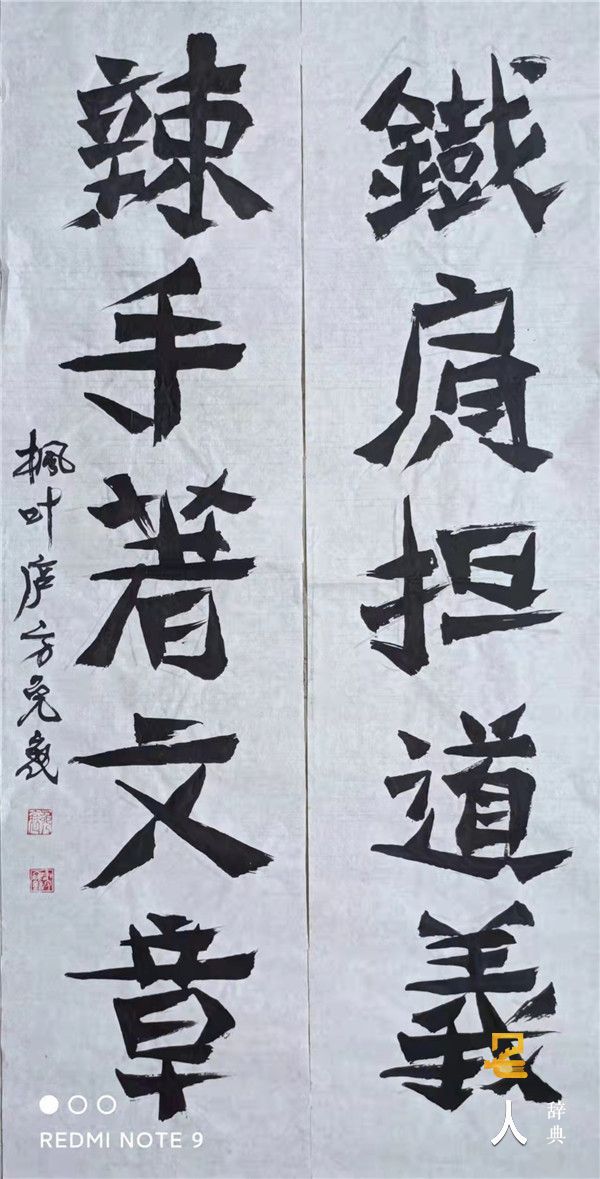 鐵肩担道義
辣手著文章
枫叶庐方克
REDMI NOTE 9
名人
辞典